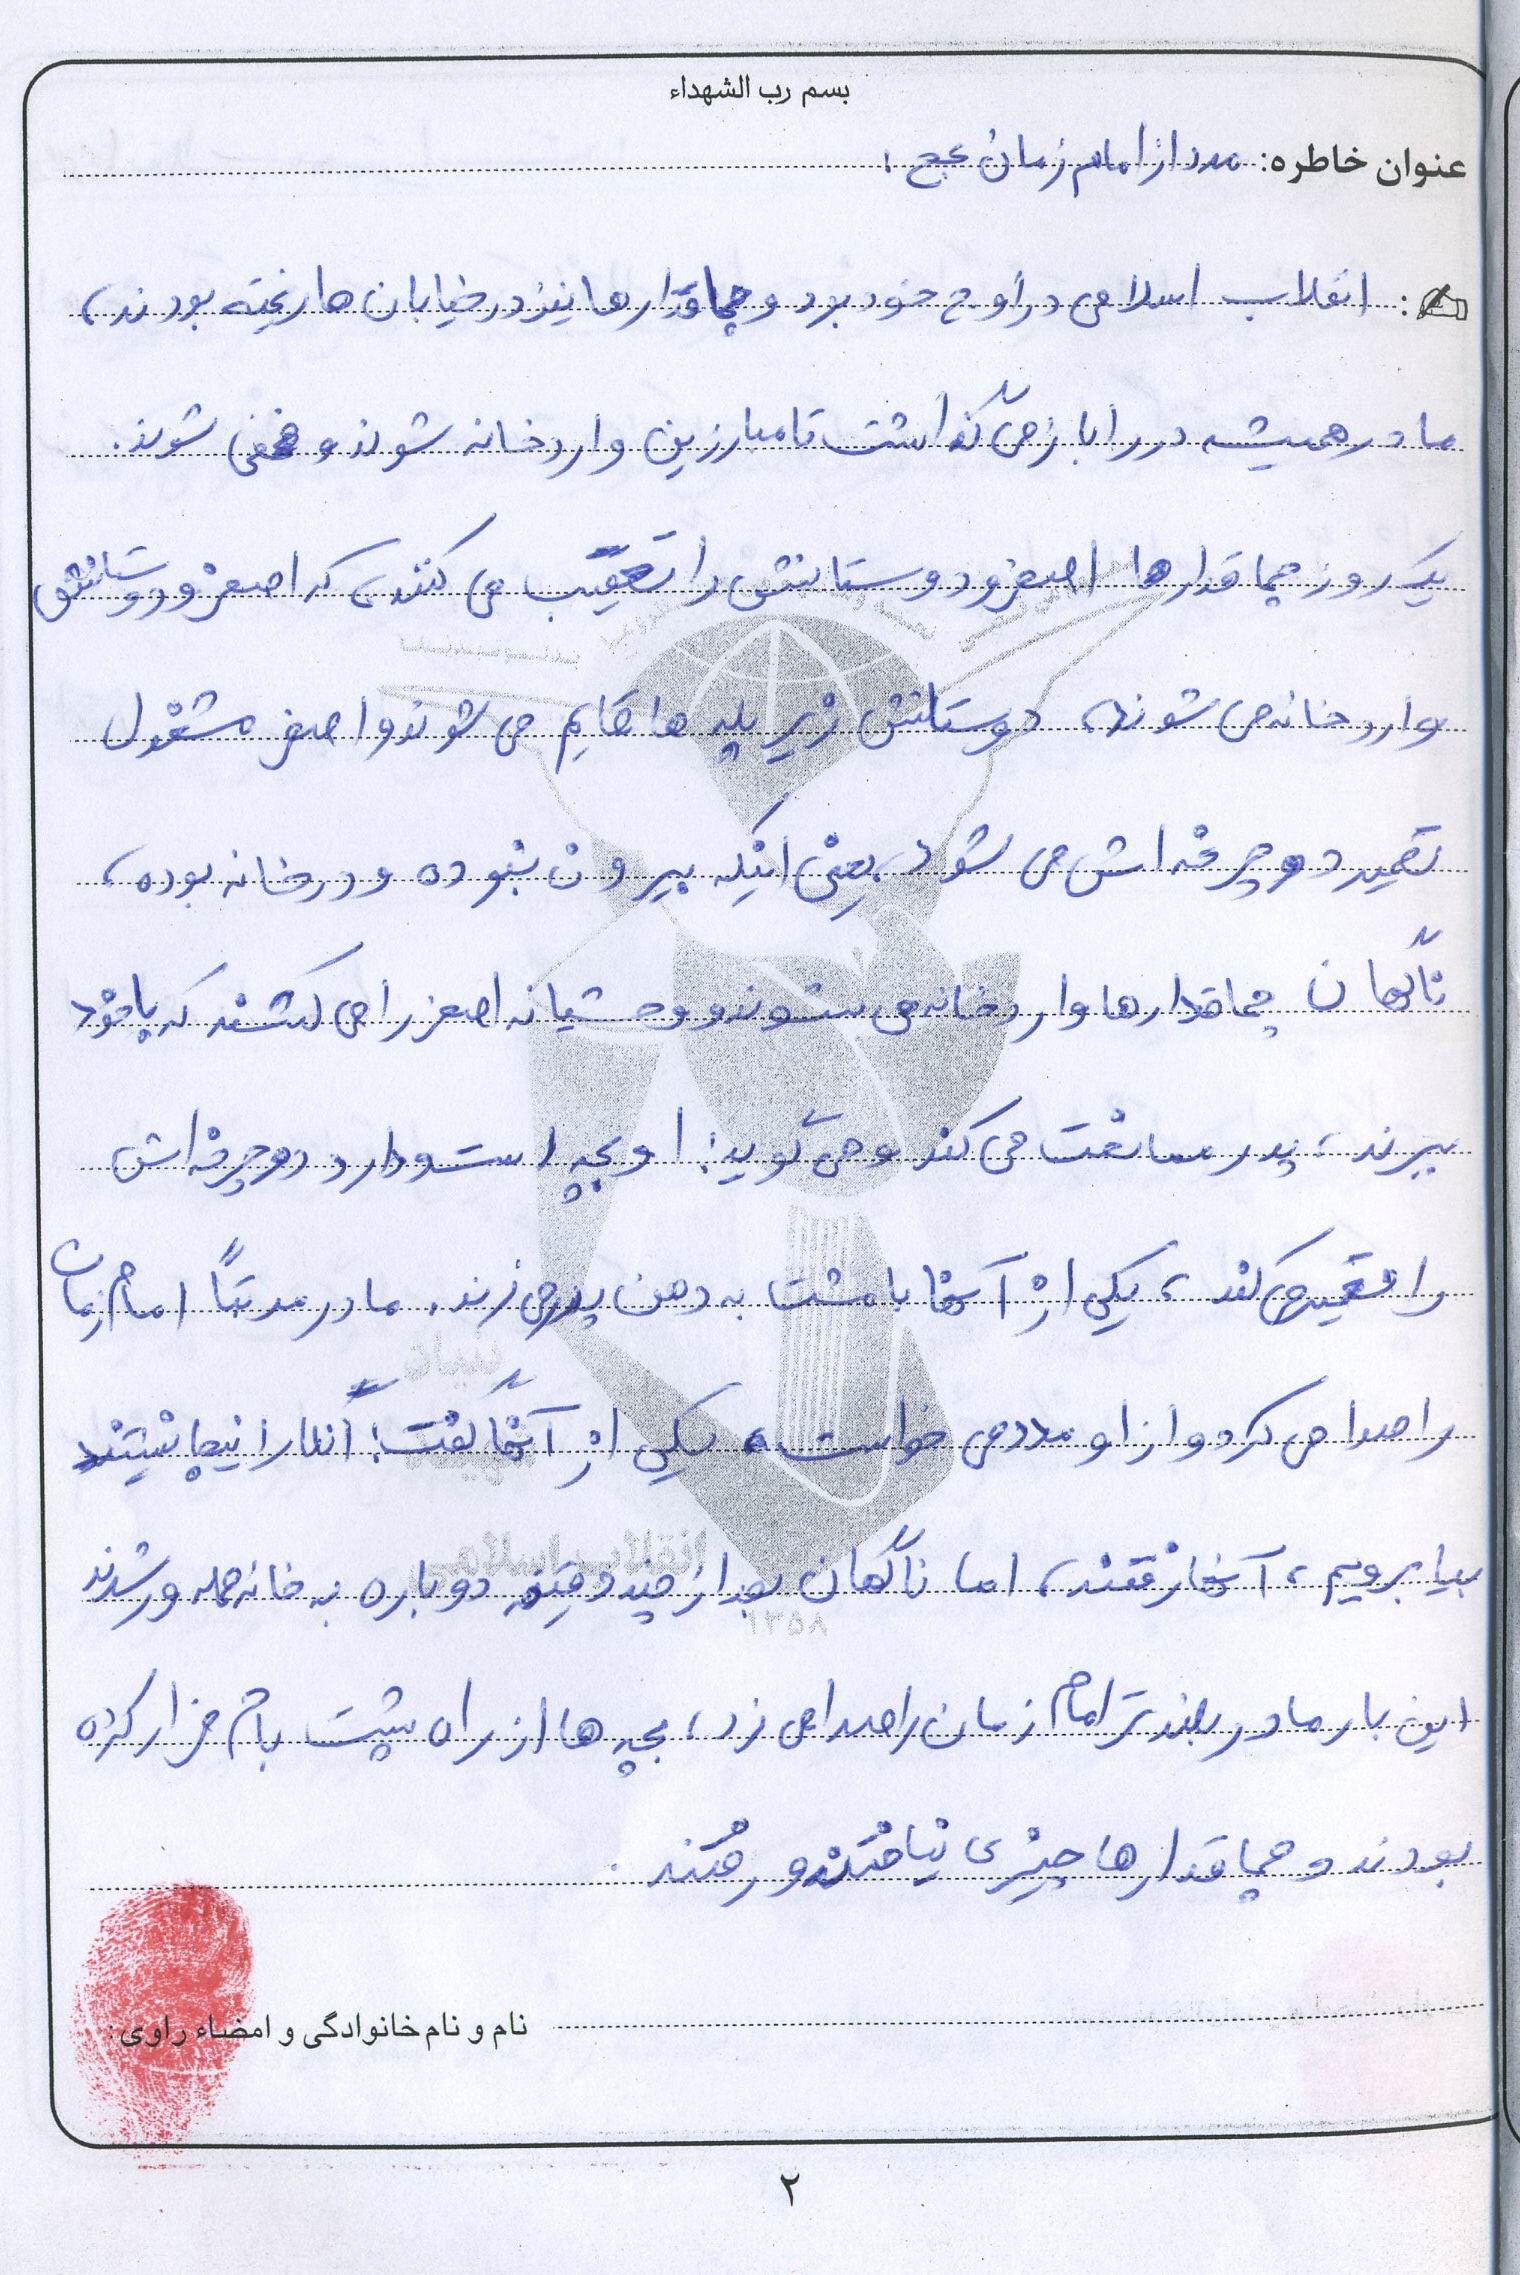 بسم رب الشهداء
عنوان خاطره: مدد از امام زمان عج:
: انقلاب اسلامی در اوج خود بود و چماقدارها نیز در خیابان ها ریخته بودند،
مادر همیشه در را باز می گذاشت تا مبارزین وارد خانه شوند و مخفی شوند.
یک روز چماقدارها اصغر و دوستانش را تعقیب می کنند، که اصغر و دوستانش
وارد خانه می شوند، دوستانش زیر پله ها قایم می شوند و اصغر مشغول
تعمیر دوچرخه اش می شود، یعنی اینکه بیرون نبوده و در خانه بوده،
ناگهان چماقدارها وارد خانه می شوند و وحشیانه اصغر را می کشند که با خود
ببرند، پدر ممانعت می کند و می گوید: او بچه است و دارد دوچرخه اش
را تعمیر می کند، یکی از آنها با مشت به دهن پدر می زند. مادر مرتبًا امام زمان
را صدا می کرد و از او مدد می خواست، یکی از آنها گفت: آنها را اینجا نیستند
بیا برویم، آنها رفتند، اما ناگهان بعد از چند دقیقه دوباره به خانه حمله ور شدند
این بار مادر بلندتر امام زمان را صدا می زد، بچه ها از راه پشت بام فرار کرده
بودند و چماقدارها چیزی نیافتند و رفتند.
نام و نام خانوادگی و امضاء راوی:
بنیاد
شهید
انقلاب اسلامی
۱۳۵۸
۲